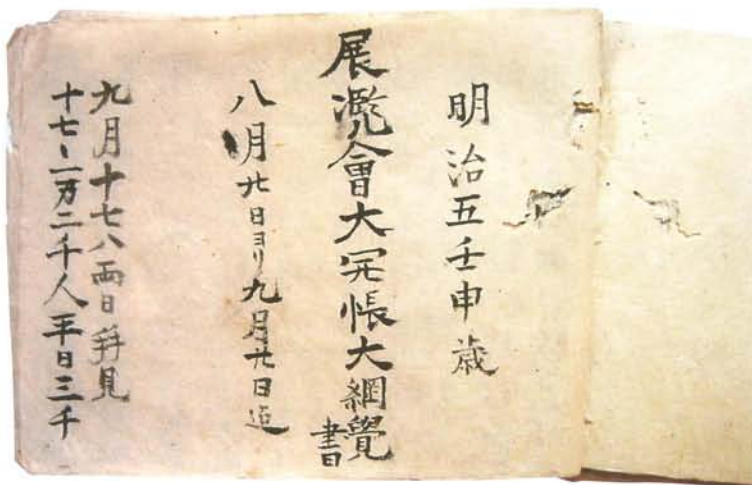 明治五壬申歳
展濫會大宛帳大綱覺書
八月廿日ヨリ九月廿日迠
九月十七八両日拜見
十七日一万二千人平日三千